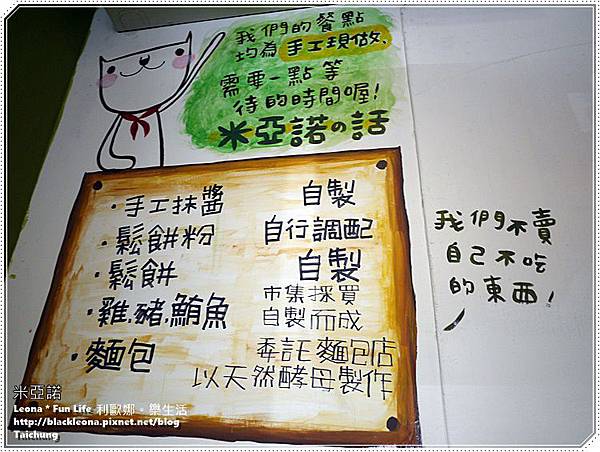 我們的餐點
均為手工現做,
需要一點等
待的時間喔!
米亞諾の話
・手工抹醬 自製
・鬆餅粉 自行調配
・鬆餅 自製
・雞.豬.鮪魚 市集採買
自製而成
・麵包 委託麵包店
以天然酵母製作
我們不賣
自己不吃
的東西!
米亞諾
Leona * Fun Life 利歐娜。樂生活
http://blackleona.pixnet.net/blog
Taichung